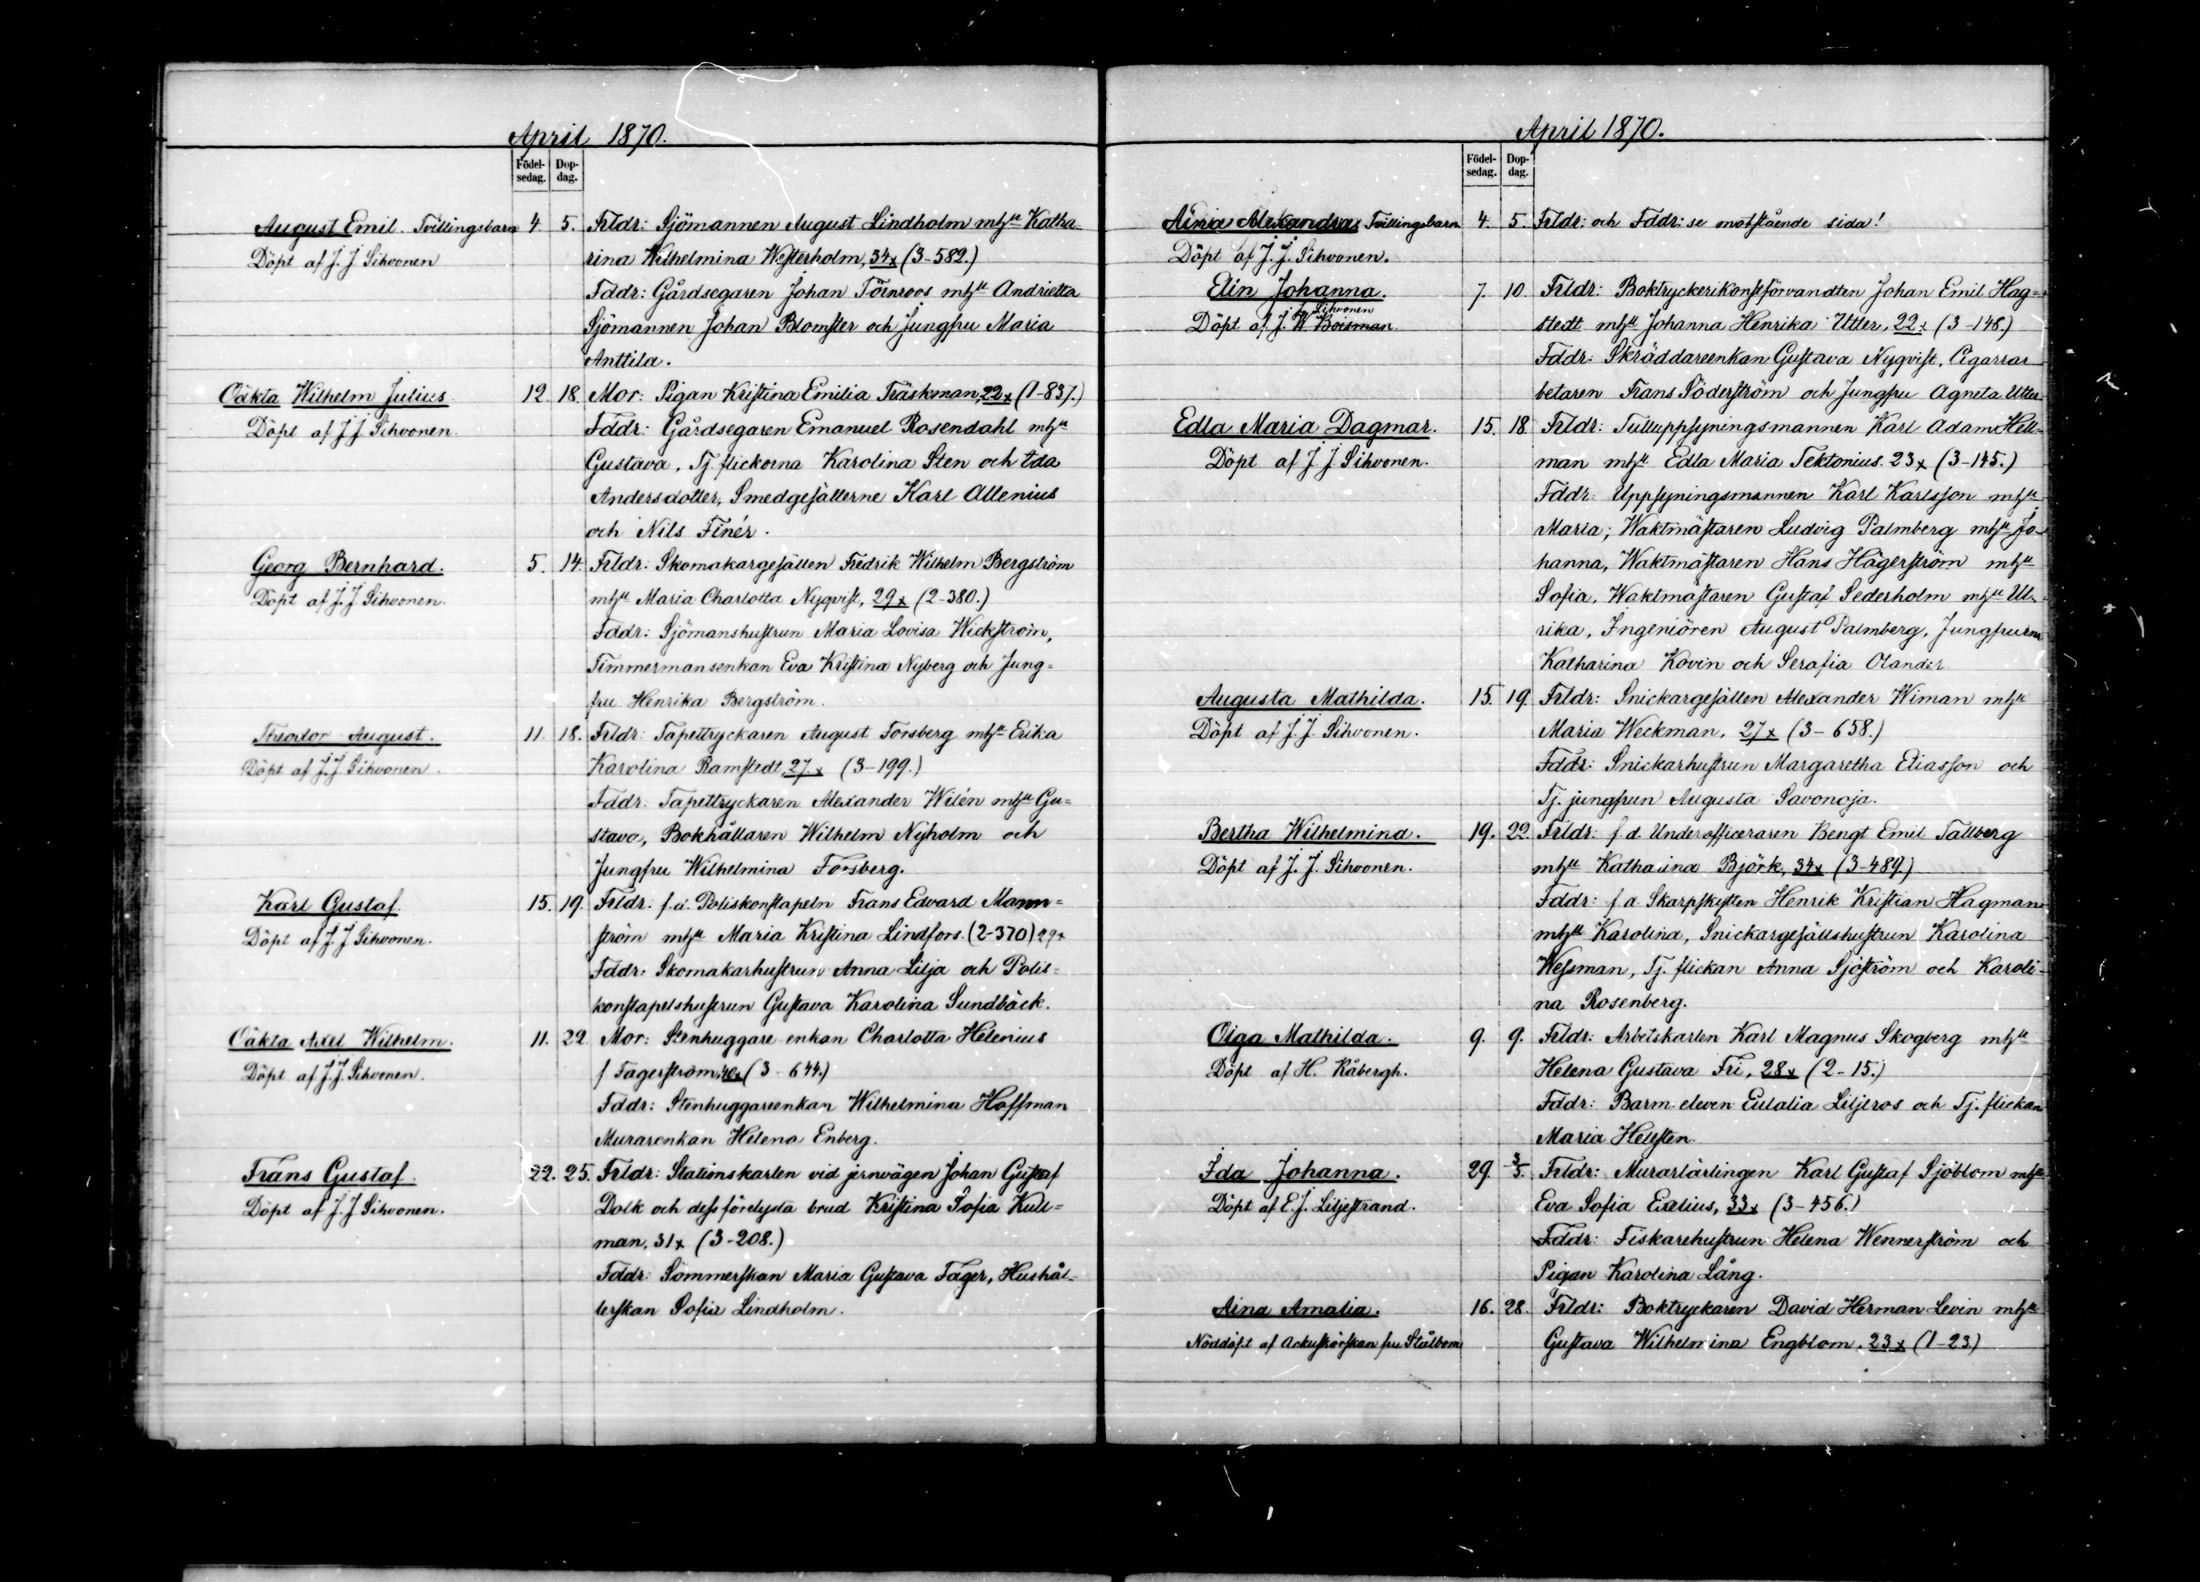 April 1870.
Födelsedag. Dopdag.
August Emil. Tvillingsbarn 4. 5. Frldr: Sjömannen August Lindholm mhu Katha-
Döpt af J. J Sihvonen rina Wilhelmina Westerholm, 34x (3-582.)
Fddr: Gårdsegaren Johan Törnroos mhu Andrietta
Sjömannen Johan Blomster och Jungfru Maria
Anttila.
Oäkta Wilhelm Julius 12. 18. Mor: Pigan Kristina Emilia Träskman, 22x (1-837.)
Döpt af J J Sihvonen. Fddr: Gårdsegaren Emanuel Rosendahl mhu
Gustava, Tj flickorna Karolina Sten och Ida
Andersdotter, Smedgesällerne Karl Allenius
och Nils Finér.
Georg Bernhard. 5. 14. Frldr: Skomakargesällen Fredrik Wilhelm Bergström
Döpt af J. J Sihvonen. mhu Maria Charlotta Nyqvist, 29x (2-380.)
Fddr: Sjömanshustrun Maria Lovisa Wickström,
Timmermansenkan Eva Kristina Nyberg och Jung-
fru Henrika Bergström.
Theodor August. 11. 18. Frldr: Tapettryckaren August Forsberg mhu Erika
Döpt af J. J. Sihvonen. Karolina Ramstedt, 27x (3-199.)
Fddr: Tapettryckaren Alexander Wilén mhu Gu-
stava, Bokhållaren Wilhelm Nyholm och
Jungfru Wilhelmina Forsberg.
Karl Gustaf 15. 19. Frldr: f.d. Poliskonstapeln Frans Edvard Mann-
Döpt af J. J Sihvonen. ström mhu Maria Kristina Lindfors. (2-370) 29x
Fddr: Skomakarhustrun Anna Lilja och Polis-
konstapelshustrun Gustava Karolina Sundbäck.
Oäkta Axel Wilhelm. 11. 22. Mor: Stenhuggare enkan Charlotta Helenius
Döpt af J. J. Sihvonen. f Fagerström, 40x (3-644.)
Fddr: Stenhuggareenkan Wilhelmina Hoffman
Murarenkan Helena Enberg.
Frans Gustaf. 22. 25. Frldr: Stationskarlen vid jernvägen Johan Gustaf
Döpt af J. J Sihvonen. Dolk och dess förelysta brud Kristina Sofia Kull-
man, 31x (3-208.)
Fddr: Sömmerskan Maria Gustava Fager, Hushål-
lerskan Sofia Lindholm.
April 1870.
Födelsedag. Dopdag.
Aina Alexandra Tvillingsbarn. 4. 5. Frldr: och Fddr: se motstående sida!
Döpt af J. J. Sihvonen.
Elin Johanna. 7. 10. Frldr: Boktryckerikonstförvandten Johan Emil Hag-
Sihvonen
Döpt af J. W Boisman stedt mhu Johanna Henrika Utter, 22x (3-148.)
Fddr: Skräddareenkan Gustava Nyqvist, Cigarrar
betaren Frans Söderström och Jungfru Agneta Utter
Edla Maria Dagmar. 15. 18. Frldr: Tulluppsyningsmannen Karl Adam Hell-
Döpt af J J Sihvonen. man mhu Edla Maria Tektonius. 23x (3-145.)
Fddr: Uppsyningsmannen Karl Karlsson mhu
Maria; Waktmästaren Ludvig Palmberg mhu Jo-
hanna, Waktmästaren Hans Hägerström mhu
Sofia, Waktmästaren Gustaf Sederholm mhu Ul-
rika, Ingeniören August Palmberg, Jungfrurna
Katharina Kovin och Serafia Olander
Augusta Mathilda. 15. 19. Frldr: Snickargesällen Alexander Wiman mhu
Döpt af J. J. Sihvonen. Maria Weckman, 27x (3-658.)
Fddr: Snickarhustrun Margaretha Eliasson och
Tj. jungfrun Augusta Savonoja.
Bertha Wilhelmina. 19. 22. Frldr: f d. Underofficeraren Bengt Emil Tallberg
Döpt af J. J. Sihvonen. mhu Katharina Björk, 34x (3-489.)
Fddr: f d Skarpskytten Henrik Kristian Hagman
mhu Karolina, Snickargesällshustrun Karolina
Wessman, Tj. flickan Anna Sjöström och Karoli-
na Rosenberg.
Olga Mathilda. 9. 9. Frldr: Arbetskarlen Karl Magnus Skogberg mhu
Döpt af H. Råbergh. Helena Gustava Fri, 28x (2-15.)
Fddr: Barm. eleven Eulalia Liljeros och Tj. flickan
Maria Hellsten.
Ida Johanna. 29. 3/5. Frldr: Murarlärlingen Karl Gustaf Sjöblom mhu
Döpt af E. J. Liljestrand. Eva Sofia Exelius, 33x (3-456.)
Fddr: Fiskarehustrun Helena Wennerström och
Pigan Karolina Lång.
Aina Amalia. 16. 28. Frldr: Boktryckaren David Herman Levin mhu
Nöddöpt af Ackuskörskan fru Stålbom Gustava Wilhelmina Engblom, 23x (1-23)